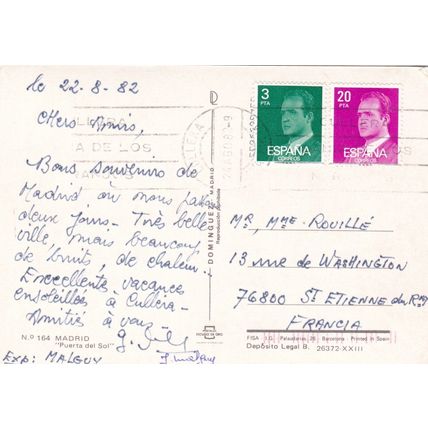 le 22-8-82
Chers Amis,
Bons souvenirs de
Madrid, où nous passons
deux jours - Très belle
ville, mais beaucoup
de bruits, de chaleur...
Excellentes vacances
ensoleillées à Cullera -
Amitiés à vous -
N.º 164 MADRID
"Puerta del Sol"
EXP: MALGUY
DOMINGUEZ MADRID
Reproducción prohibida
CULLERA
DE LOS
3
PTA
ESPAÑA
CORREOS
20
PTA
ESPAÑA
CORREOS
MR, MME ROUILLÉ
13 rue de WASHINGTON
76800 St ETIENNE du RAY
FRANCIA
FISA - I.G. Palaudarias, 26 - Barcelona - Printed in Spain
Depósito Legal B. 26372-XXIII